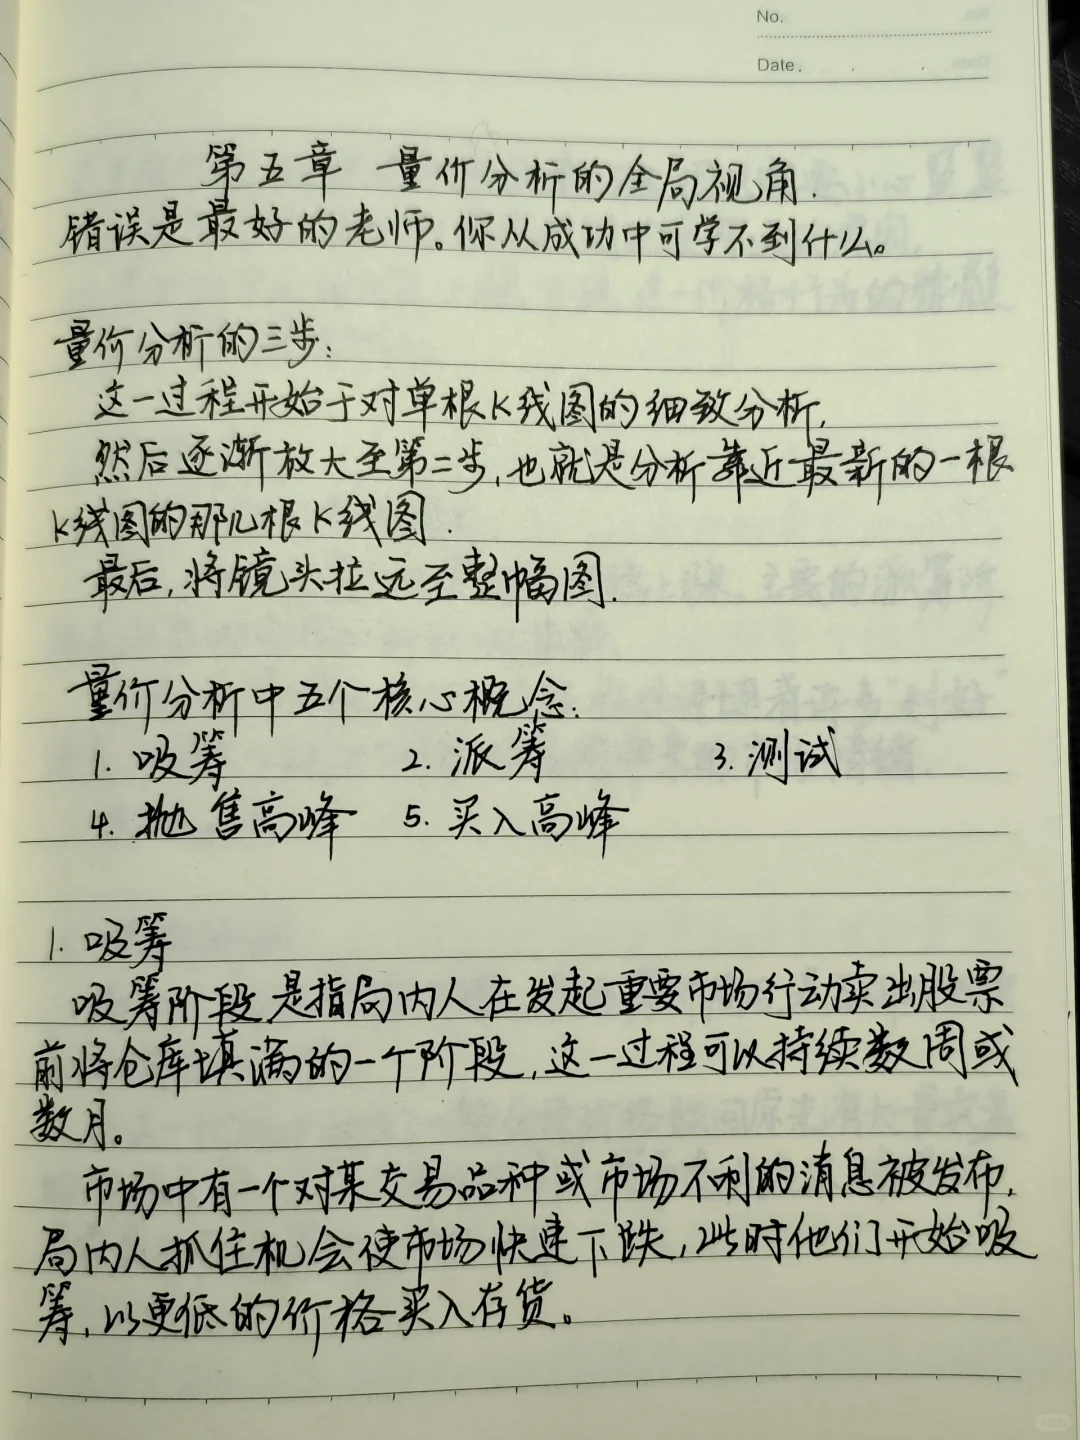 No.
Date.
第五章 量价分析的全局视角.
错误是最好的老师。你从成功中可学不到什么。
量价分析的三步:
这一过程开始于对单根K线图的细致分析,
然后逐渐放大至第二步,也就是分析靠近最新的一根
K线图的那几根K线图.
最后,将镜头拉远至整幅图.
量价分析中五个核心概念:
1. 吸筹 2. 派筹 3. 测试
4. 抛售高峰 5. 买入高峰
1. 吸筹
吸筹阶段是指局内人在发起重要市场行动卖出股票
前将仓库填满的一个阶段,这一过程可以持续数周或
数月。
市场中有一个对某交易品种或市场不利的消息被发布,
局内人抓住机会使市场快速下跌,此时他们开始吸
筹,以更低的价格买入存货。